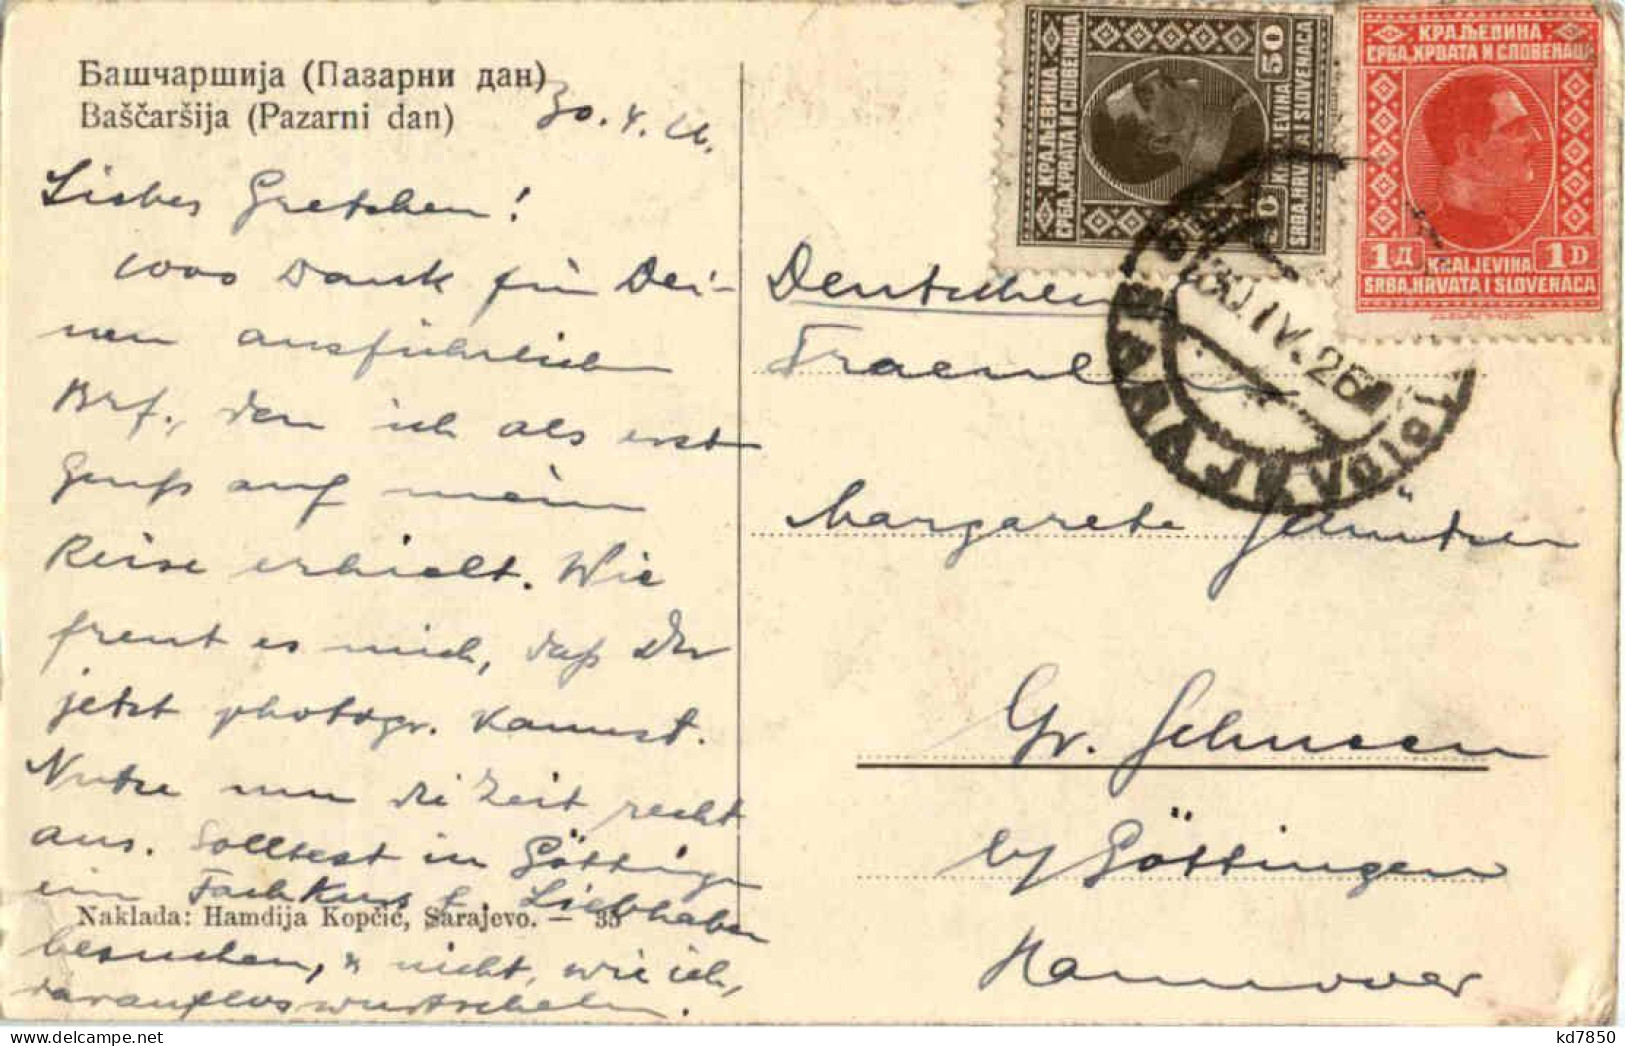 Башчаршија (Пазарни дан)
Baščaršija (Pazarni dan)
30.4.26.
Liebes Gretchen!
1000 Dank für Dei-
nen ausführlichen
Brf., den ich als erst
Gruß auf mein
Reise erhielt. Wie
freut es mich, daß Du
jetzt photogr. kannst.
Nutze nun die Zeit recht
aus. Solltest in Göttingen
ein Fachkurs f. Liebhaber
besuchen, u nicht, wie ich,
darauflos wurschteln.
Naklada: Hamdija Kopčić, Sarajevo. — 35
КРАЉЕВИНА
СРБА, ХРВАТА И СЛОВЕНАЦА
50
KRALJEVINA
SRBA, HRVATA I SLOVENACA
КРАЉЕВИНА
СРБА, ХРВАТА И СЛОВЕНАЦА
1Д 1D
KRALJEVINA
SRBA, HRVATA I SLOVENACA
SARAJEVO
30.IV.26
Deutschen
Fraeulein
Margarete
Gr. Schneen
by Göttingen
Hannover
kd7850